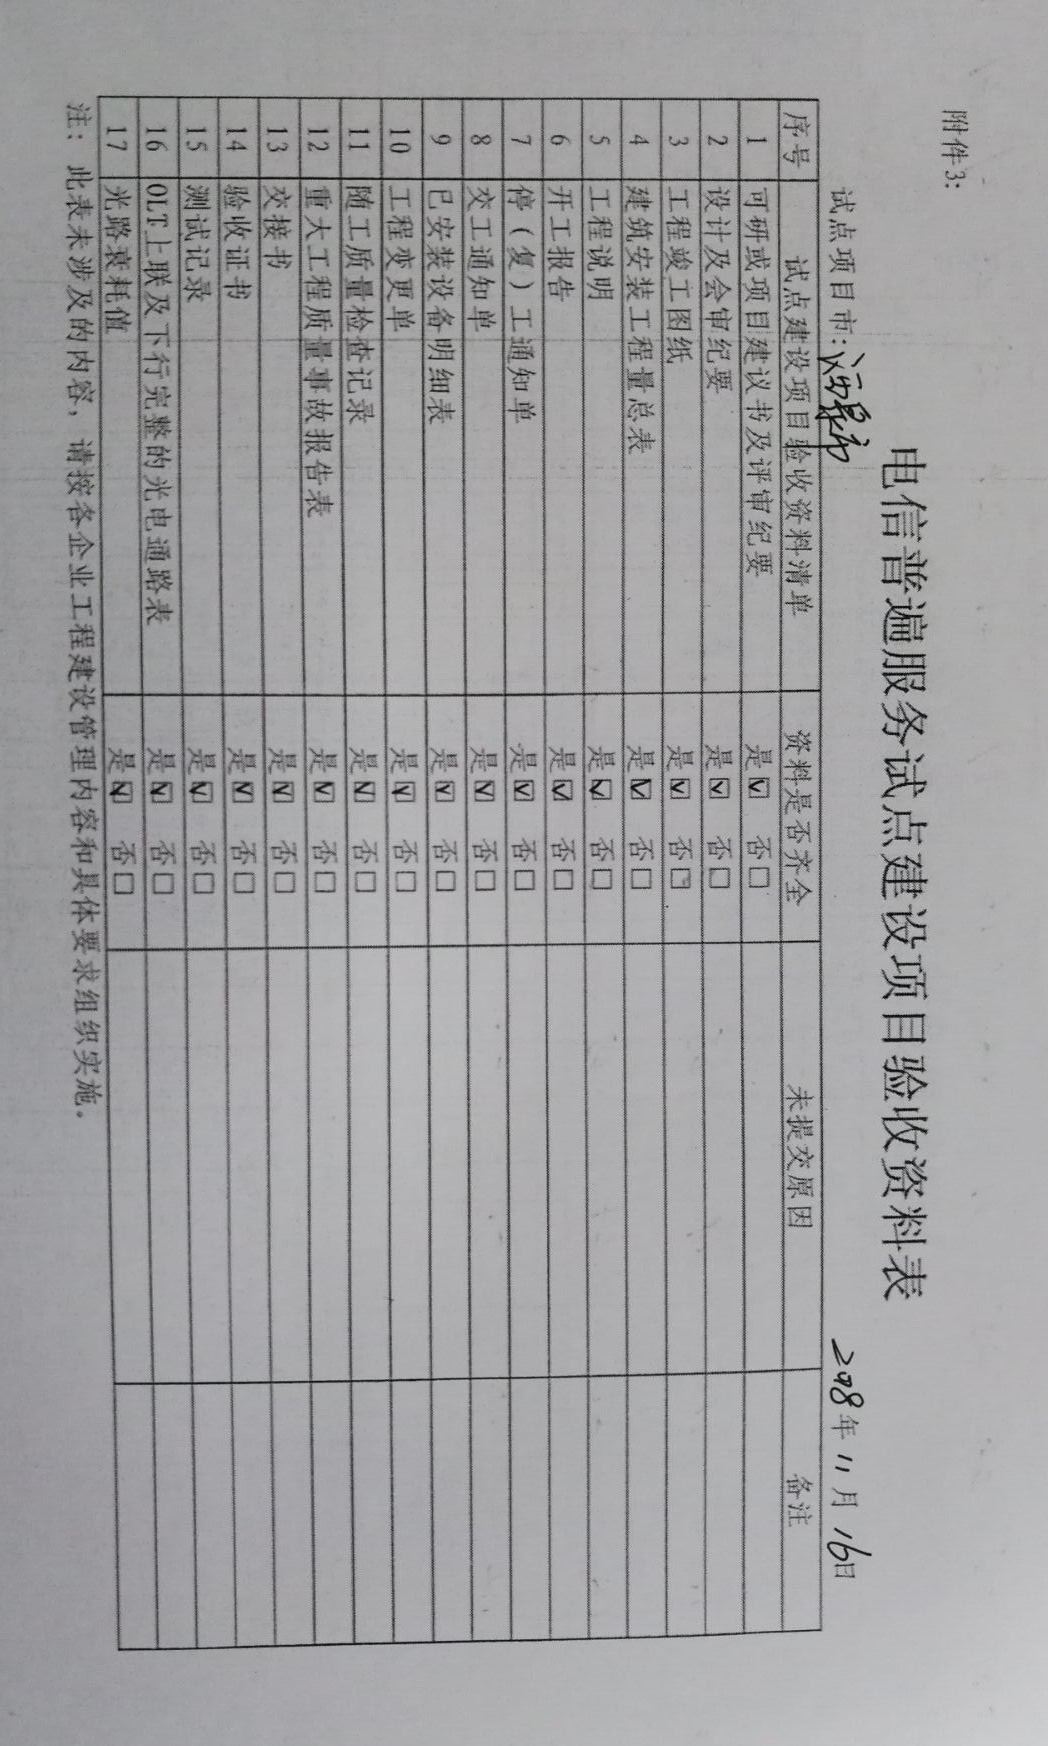 附件3:
电信普遍服务试点建设项目验收资料表
试点项目市: 2018年11月16日
序号 试点建设项目验收资料清单 资料是否齐全 未提交原因 备注
1 可研或项目建议书及评审纪要 是☑ 否□
2 设计及会审纪要 是☑ 否□
3 工程竣工图纸 是☑ 否□
4 建筑安装工程量总表 是☑ 否□
5 工程说明 是☑ 否□
6 开工报告 是☑ 否□
7 停（复）工通知单 是☑ 否□
8 交工通知单 是☑ 否□
9 已安装设备明细表 是☑ 否□
10 工程变更单 是☑ 否□
11 随工质量检查记录 是☑ 否□
12 重大工程质量事故报告表 是☑ 否□
13 交接书 是☑ 否□
14 验收证书 是☑ 否□
15 测试记录 是☑ 否□
16 OLT上联及下行完整的光电通路表 是☑ 否□
17 光路衰耗值 是☑ 否□
注：此表未涉及的内容，请按各企业工程建设管理内容和具体要求组织实施。